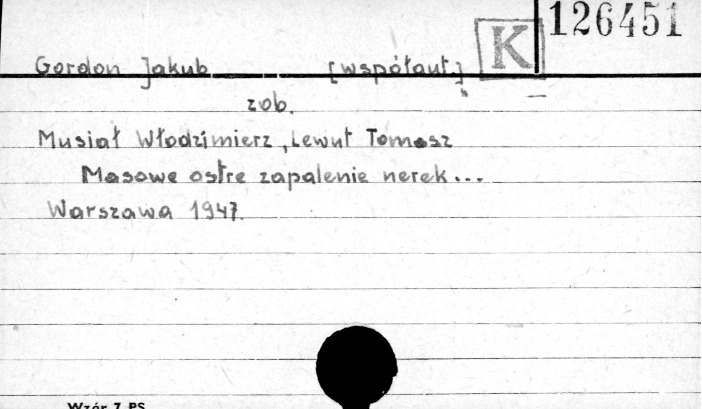 126451
K
Gordon Jakub [współaut.]
zob.
Musiał Włodzimierz, Lewut Tomasz
Masowe ostre zapalenie nerek...
Warszawa 1947.
Wzór 7 PS